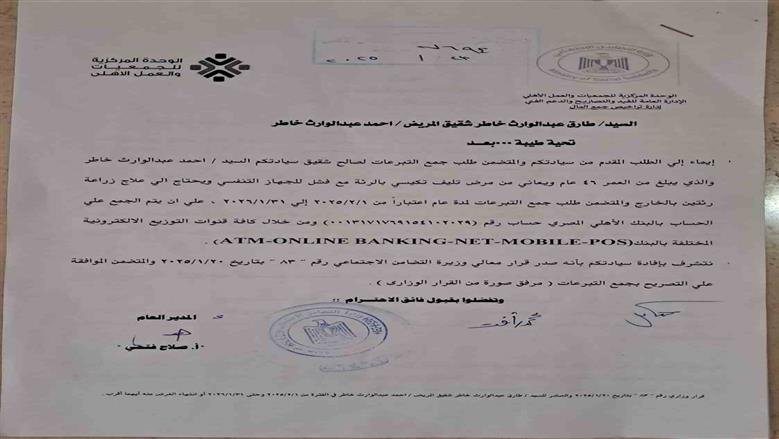 الوحدة المركزية
للجمعيات
والعمل الأهلى
٢٠٢٥ / ١ / ٢٣
الوحدة المركزية للجمعيات والعمل الأهلي
الإدارة العامة للقيد والتصاريح والدعم الفني
إدارة تراخيص جمع المال
السيد/ طارق عبدالوارث خاطر شقيق المريض / احمد عبدالوارث خاطر
تحية طيبة ---وبعد
إيماء إلي الطلب المقدم من سيادتكم والمتضمن طلب جمع التبرعات لصالح شقيق سيادتكم السيد / احمد عبدالوارث خاطر
والذي يبلغ من العمر ٤٦ عام ويعاني من مرض تليف تكيسي بالرئة مع فشل للجهاز التنفسي ويحتاج الي علاج زراعة
رئتين بالخارج والمتضمن طلب جمع التبرعات لمدة عام اعتباراً من ٢٠٢٥/٢/١ إلي ٢٠٢٦/١/٣١ ، علي ان يتم الجمع علي
الحساب بالبنك الأهلي المصري حساب رقم (٠٠١٣١٧١٧٦٩١٥٤١٠٢٠٢٩) ومن خلال كافة قنوات التوزيع الالكترونية
المختلفة بالبنك(ATM-ONLINE BANKING-NET-MOBILE-POS) .
نتشرف بإفادة سيادتكم بأنه صدر قرار معالي وزيرة التضامن الاجتماعي رقم " ٨٣ " بتاريخ ٢٠٢٥/١/٢٠ والمتضمن الموافقة
علي التصريح بجمع التبرعات ( مرفق صورة من القرار الوزارى ) .
وتفضلوا بقبول فائق الاحترام ،،
المدير العام
أ. صلاح فتحي
قرار وزاري رقم " ٨٣ " بتاريخ ٢٠٢٥/١/٢٠ والصادر للسيد / طارق عبدالوارث خاطر شقيق المريض / احمد عبدالوارث خاطر في الفترة من ٢٠٢٥/٢/١ وحتى ٢٠٢٦/١/٣١ أو انتهاء الغرض منه أيهما أقرب .